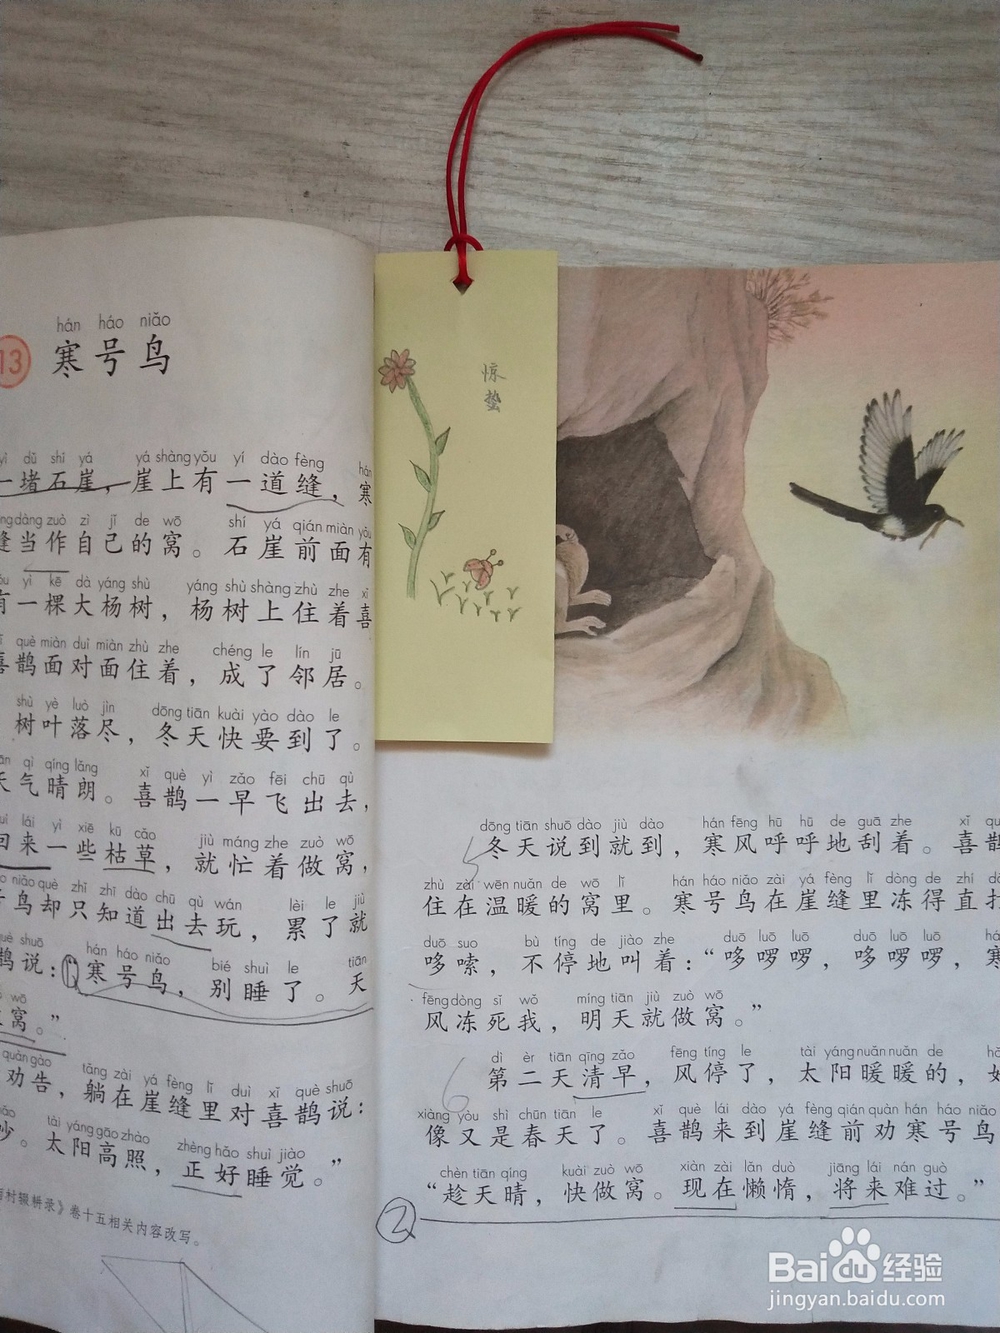 hán háo niǎo
13 寒号鸟
yì dǔ shí yá yá shàng yǒu yí dào fèng hán
一堵石崖，崖上有一道缝，寒
dàng zuò zì jǐ de wō shí yá qián miàn yǒu
缝当作自己的窝。石崖前面有
yì kē dà yáng shù yáng shù shàng zhù zhe xǐ
有一棵大杨树，杨树上住着喜
què miàn duì miàn zhù zhe chéng le lín jū
喜鹊面对面住着，成了邻居。
shù yè luò jìn dōng tiān kuài yào dào le
树叶落尽，冬天快要到了。
qì qíng lǎng xǐ què yì zǎo fēi chū qù
天气晴朗。喜鹊一早飞出去，
lái yì xiē kū cǎo jiù máng zhe zuò wō
回来一些枯草，就忙着做窝，
niǎo què zhǐ zhī dào chū qù wán lèi le jiù
鸟却只知道出去玩，累了就
què shuō hán háo niǎo bié shuì le tiān
鹊说：①寒号鸟，别睡了。天
wō
窝。”
quàn gào tǎng zài yá fèng lǐ duì xǐ què shuō
劝告，躺在崖缝里对喜鹊说：
tài yáng gāo zhào zhèng hǎo shuì jiào
吵。太阳高照，正好睡觉。”
村辍耕录》卷十五相关内容改写。
惊
蛰
5
dōng tiān shuō dào jiù dào hán fēng hū hū de guā zhe xǐ
冬天说到就到，寒风呼呼地刮着。喜鹊
zhù zài wēn nuǎn de wō lǐ hán háo niǎo zài yá fèng lǐ dòng de zhí
住在温暖的窝里。寒号鸟在崖缝里冻得直打
duō suo bù tíng de jiào zhe duō luō luō duō luō luō
哆嗦，不停地叫着：“哆啰啰，哆啰啰，寒
fēng dòng sǐ wǒ míng tiān jiù zuò wō
风冻死我，明天就做窝。”
6
dì èr tiān qīng zǎo fēng tíng le tài yáng nuǎn nuǎn de
第二天清早，风停了，太阳暖暖的，好
xiàng yòu shì chūn tiān le xǐ què lái dào yá fèng qián quàn hán háo niǎo
像又是春天了。喜鹊来到崖缝前劝寒号鸟
chèn tiān qíng kuài zuò wō xiàn zài lǎn duò jiāng lái nán guò
“趁天晴，快做窝。现在懒惰，将来难过。”
②
Baidu经验
jingyan.baidu.com